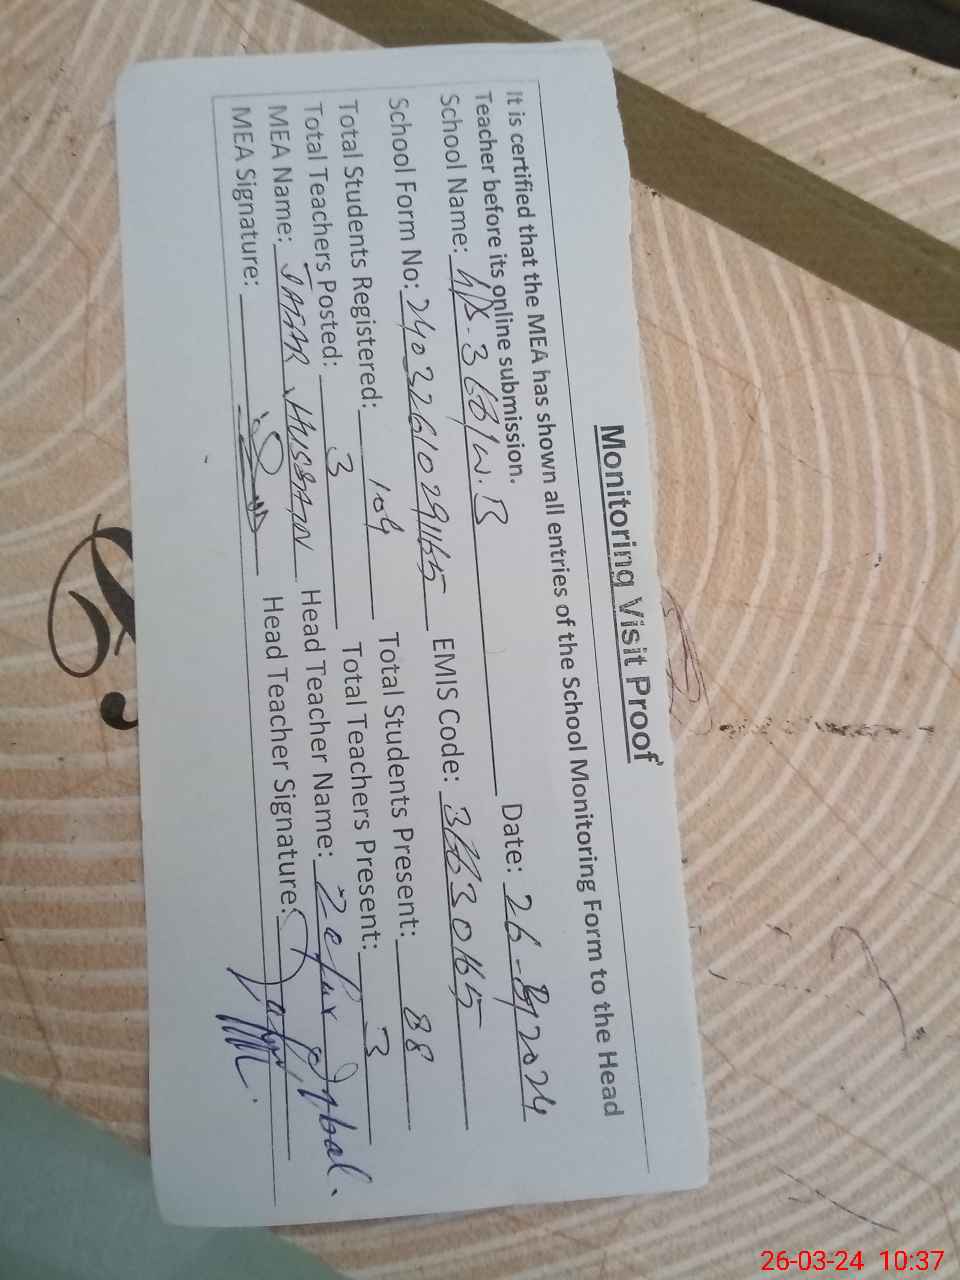 Monitoring Visit Proof
It is certified that the MEA has shown all entries of the School Monitoring Form to the Head
Teacher before its online submission.
School Name: Date: 26-3-2024
School Form No: EMIS Code:
Total Students Registered: 104 Total Students Present: 88
Total Teachers Posted: 3 Total Teachers Present: 3
MEA Name: JAFAR HUSSAIN Head Teacher Name: Zafar Iqbal.
MEA Signature: Head Teacher Signature:
26-03-24 10:37